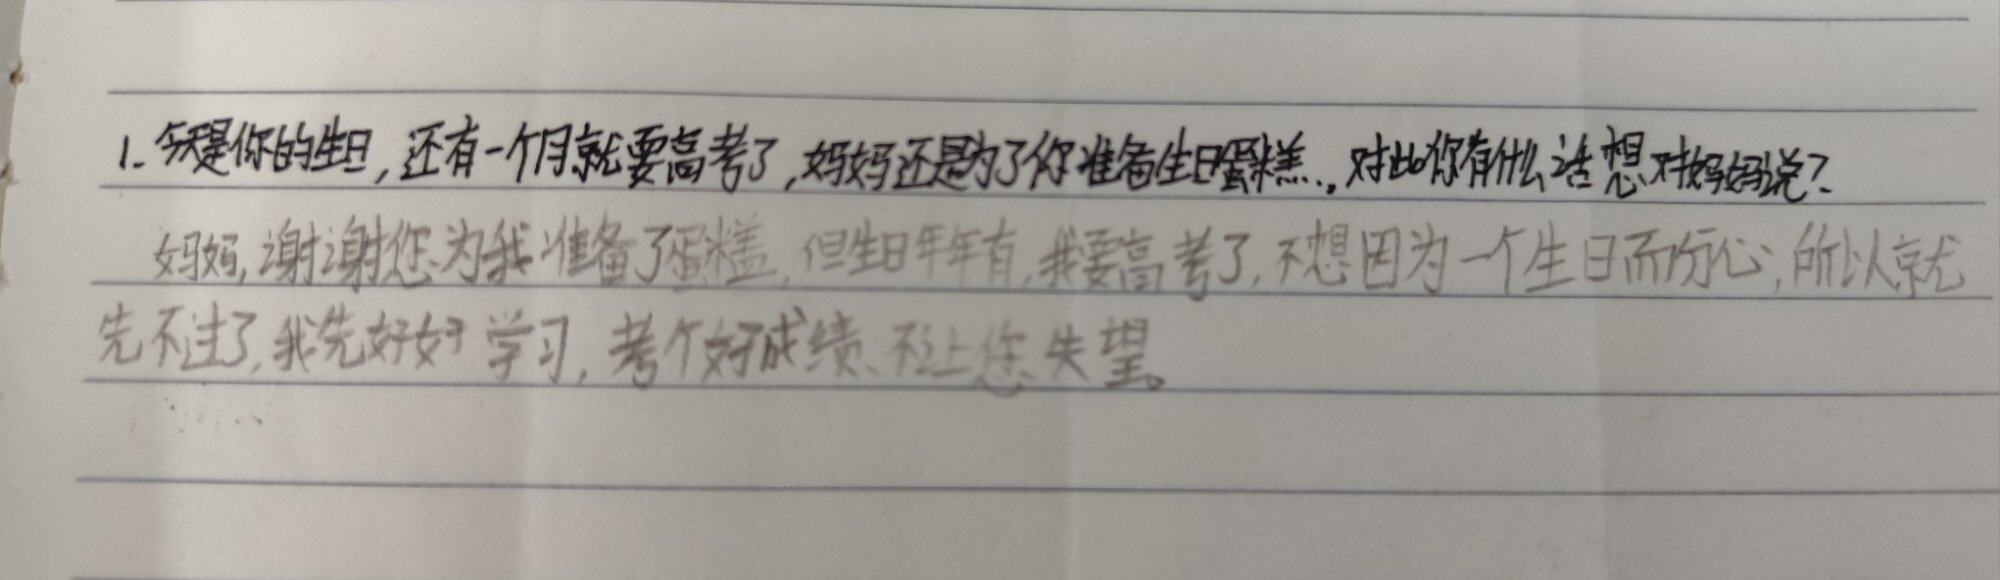 1. 今天是你的生日,还有一个月就要高考了,妈妈还是为了你准备生日蛋糕.,对此你有什么话想对妈妈说?
妈妈,谢谢您为我准备了蛋糕,但生日年年有,我要高考了,不想因为一个生日而分心,所以就
先不过了,我先好好学习,考个好成绩、不让您失望。